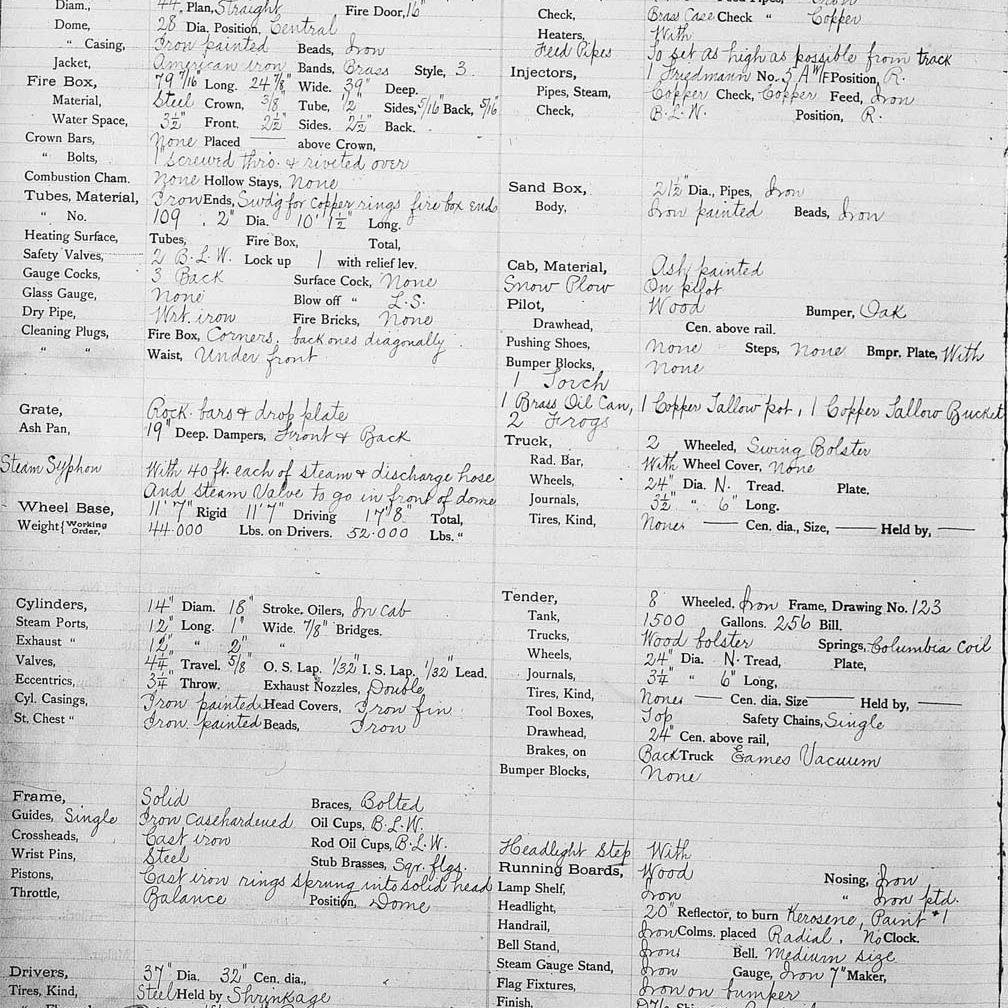 Diam., 44" Plan, Straight Fire Door, 16"
Dome, 28" Dia. Position, Central
" Casing, Iron painted Beads, Iron
Jacket, American iron Bands, Brass Style, 3
Fire Box, 79 7/16" Long. 24 7/8" Wide. 39" Deep.
Material, Steel Crown, 3/8" Tube, 1/2" Sides, 5/16" Back, 5/16"
Water Space, 3½" Front. 2½" Sides. 2½" Back.
Crown Bars, None Placed — above Crown,
" Bolts, 1" screwed thro. & riveted over
Combustion Cham. None Hollow Stays, None
Tubes, Material, Iron Ends, Swdg for copper rings fire box end
" No. 109 . 2" Dia. 10' 1½" Long.
Heating Surface, Tubes, Fire Box, Total,
Safety Valves, 2 B.L.W. Lock up 1 with relief lev.
Gauge Cocks, 3 Back Surface Cock, None
Glass Gauge, None Blow off " L.S.
Dry Pipe, Wrt. iron Fire Bricks, None
Cleaning Plugs, Fire Box, Corners. back ones diagonally
" " Waist, Under front
Grate, Rock bars & drop plate
Ash Pan, 19" Deep. Dampers, Front & Back
Steam Syphon With 40 ft. each of steam & discharge hose
And steam Valve to go in front of dome
Wheel Base, 11' 7" Rigid 11' 7" Driving 17' 8" Total,
Weight { Working Order, 44.000 Lbs. on Drivers. 52.000 Lbs. "
Cylinders, 14" Diam. 18" Stroke. Oilers, In cab
Steam Ports, 12" Long. 1" Wide. 7/8" Bridges.
Exhaust " 12" " 2" "
Valves, 4¼" Travel. 5/8" O. S. Lap. 1/32" I. S. Lap. 1/32" Lead.
Eccentrics, 3¼" Throw. Exhaust Nozzles, Double
Cyl. Casings, Iron painted Head Covers, Iron fin.
St. Chest " Iron painted Beads, Iron
Frame, Solid Braces, Bolted
Guides, Single Iron Casehardened Oil Cups, B.L.W.
Crossheads, Cast iron Rod Oil Cups, B.L.W.
Wrist Pins, Steel Stub Brasses, Sqr. flgs.
Pistons, Cast iron rings sprung into solid head
Throttle, Balance Position, Dome
Drivers, 37" Dia. 32" Cen. dia.,
Tires, Kind, Steel Held by Shrinkage
Check, Brass Case Check " Copper
Heaters, With
Feed Pipes To set as high as possible from track
Injectors, 1 Friedmann No. 5 A W/F Position, R.
Pipes, Steam, Copper Check, Copper Feed, Iron
Check, B.L.W. Position, R.
Sand Box, 21½" Dia., Pipes, Iron
Body, Iron painted Beads, Iron
Cab, Material, Ash painted
Snow Plow On pilot
Pilot, Wood Bumper, Oak
Drawhead, Cen. above rail.
Pushing Shoes, None Steps, None Bmpr. Plate, With
Bumper Blocks, None
1 Torch
1 Brass Oil Can, 1 Copper Tallow pot, 1 Copper Tallow Bucket
2 Frogs
Truck, 2 Wheeled, Swing Bolster
Rad. Bar, With Wheel Cover, None
Wheels, 24" Dia. N. Tread. Plate.
Journals, 3½" " 6" Long.
Tires, Kind, None — Cen. dia., Size, — Held by, —
Tender, 8 Wheeled, Iron Frame, Drawing No. 123
Tank, 1500 Gallons. 256 Bill.
Trucks, Wood bolster Springs, Columbia Coil
Wheels, 24" Dia. N. Tread, Plate,
Journals, 3¼" " 6" Long,
Tires, Kind, None — Cen. dia., Size Held by, —
Tool Boxes, Top Safety Chains, Single
Drawhead, 24" Cen. above rail,
Brakes, on Back Truck Eames Vacuum
Bumper Blocks, None
Headlight Step With
Running Boards, Wood Nosing, Iron
Lamp Shelf, Iron " Iron ptd.
Headlight, 20" Reflector, to burn Kerosene, Paint #1
Handrail, Iron Colms. placed Radial. No Clock.
Bell Stand, Iron Bell. Medium size
Steam Gauge Stand, Iron Gauge, Iron 7" Maker,
Flag Fixtures, Iron on bumper
Finish,